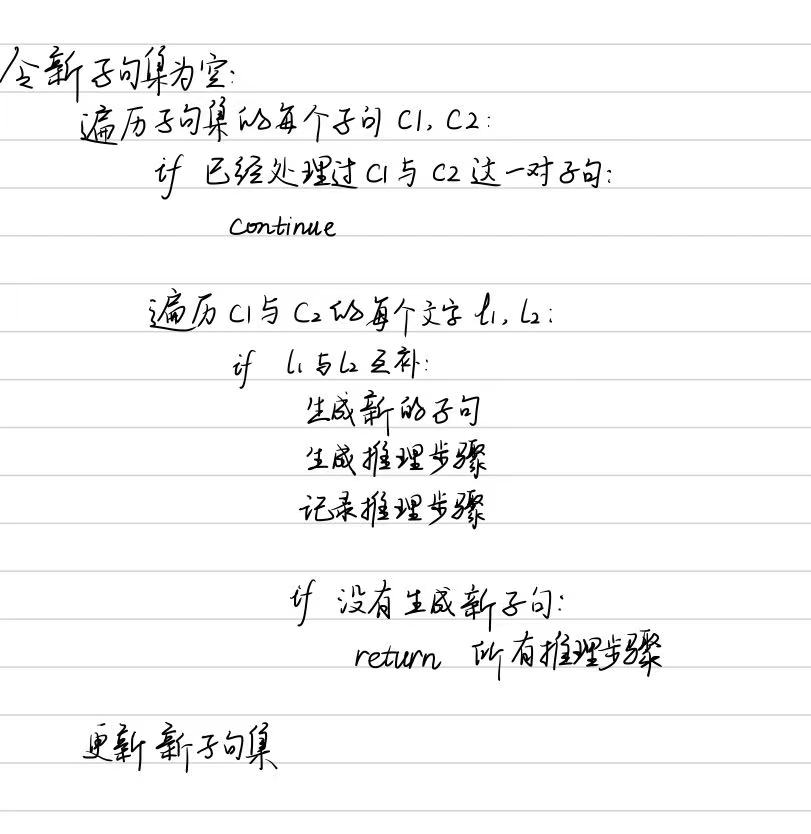 令新子句集为空:
遍历子句集的每个子句 C1, C2:
if 已经处理过C1与C2这一对子句:
continue
遍历C1与C2的每个文字 l1, l2:
if l1与l2互补:
生成新的子句
生成推理步骤
记录推理步骤
if 没有生成新子句:
return 所有推理步骤
更新新子句集